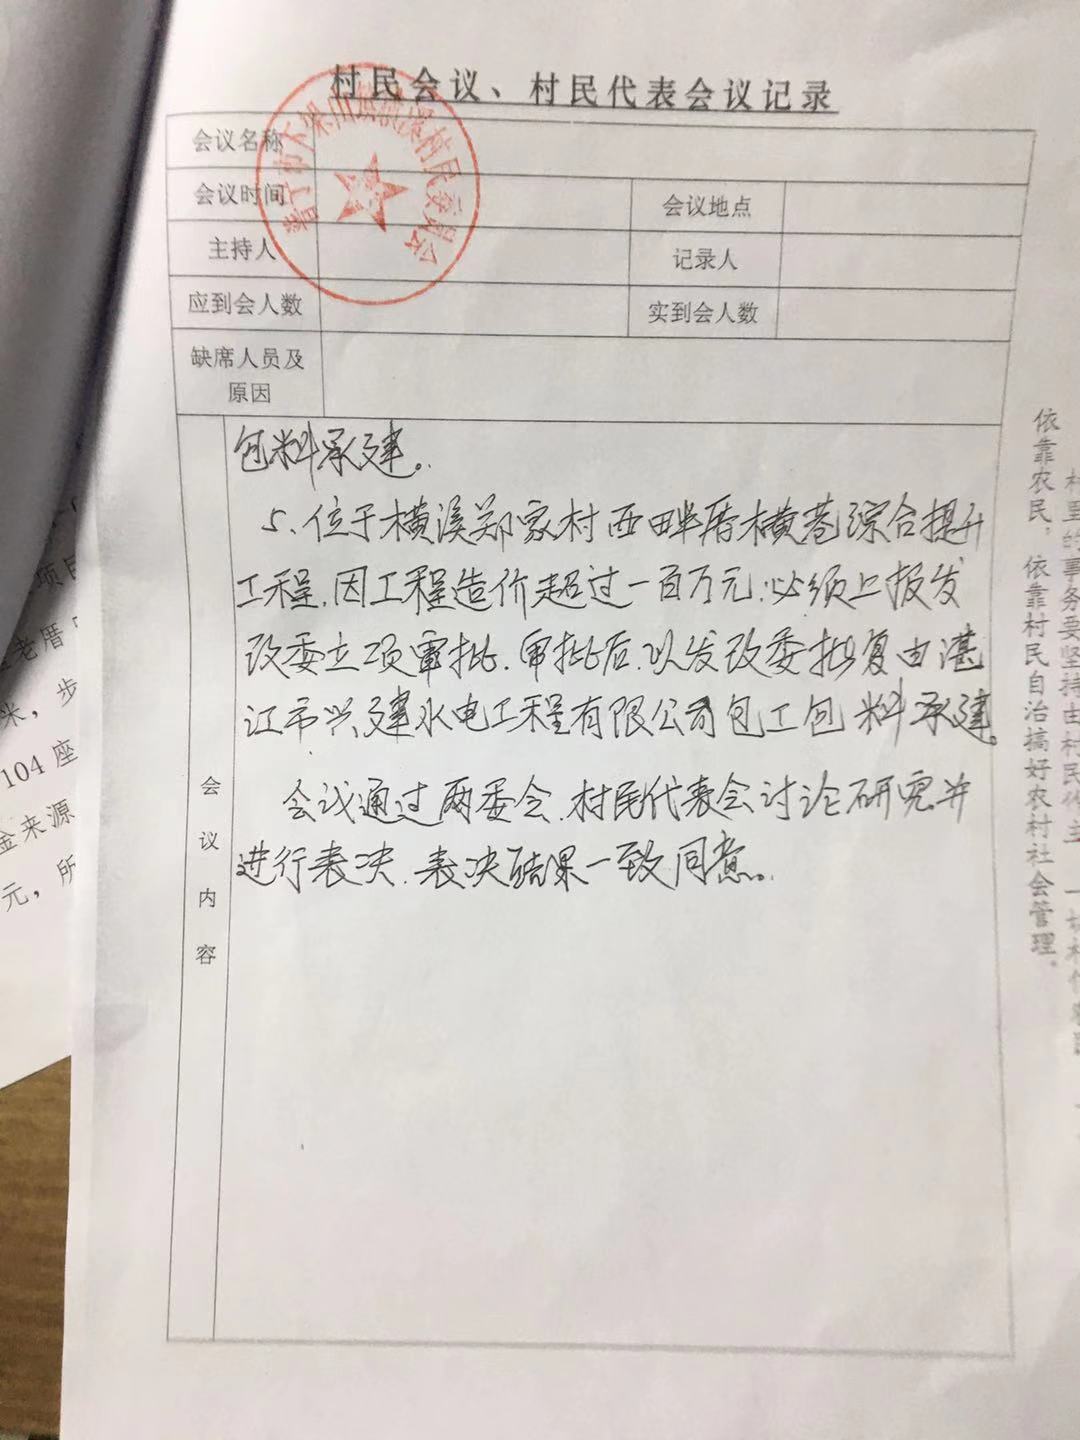 村民会议、村民代表会议记录
会议名称
会议时间
会议地点
主持人
记录人
应到会人数
实到会人数
缺席人员及
原因
会议内容
包料承建。
5、位于横溪郑家村西畔厝横巷综合提升
工程,因工程造价超过一百万元,必须上报发
改委立项审批,审批后,以发改委批复由湛
江市兴建水电工程有限公司包工包料承建。
会议通过两委会、村民代表会讨论研究并
进行表决,表决结果一致同意。
村里的事务要坚持由村民
依靠农民,依靠村民自治搞好农村社会管理。
项目
老厝
米,步
104座
金来源
元,所
村民委员会